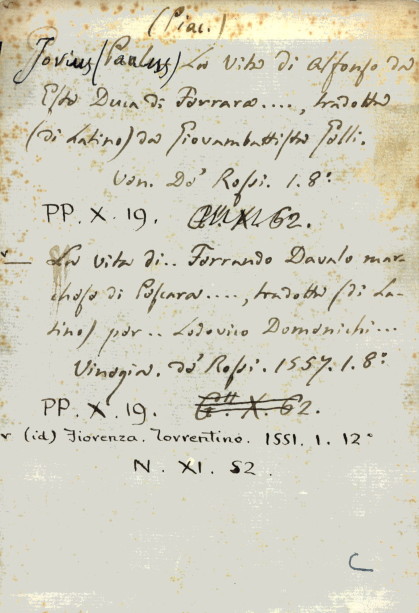 (Piac.)
Jovius (Paulus) La vita di Alfonso da
Este Duca di Ferrara ...., tradotta
(di Latino) da Giovambattista Gelli.
Ven. De' Rossi. 1. 8º
PP. X. 19. 62.
La vita di .. Ferrando Davalo mar-
chese di Pescara ...., tradotta (di La-
tino) per .. Lodovico Domenichi ...
Vinegia. de' Rossi. 1557. 1. 8º
PP. X. 19. G X. 62.
(id) Fiorenza. Torrentino. 1551. 1. 12º
N. XI. 52.
C